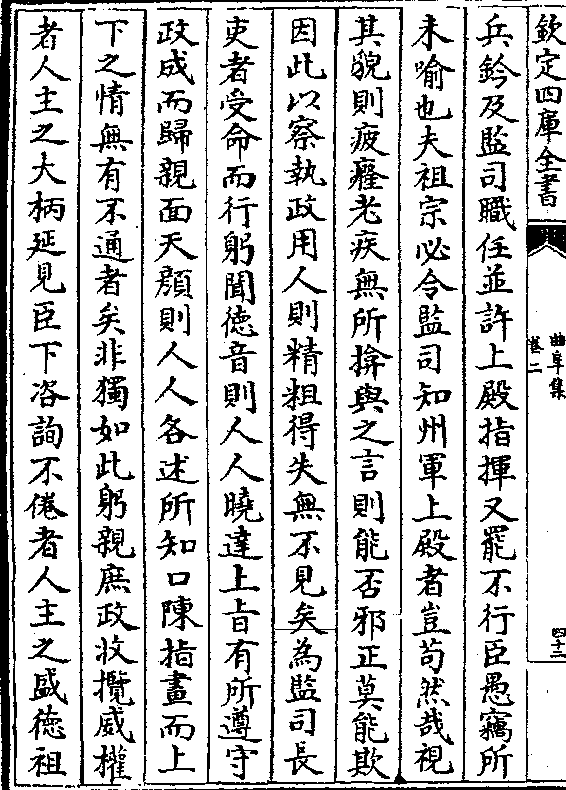 欽定四庫全書
曲阜集
卷二
四十二
兵鈐及監司職任並許上殿指揮又罷不行臣愚竊所
未喻也夫祖宗必令監司知州軍上殿者豈苟然哉視
其貌則疲癃老疾無所揜與之言則能否邪正莫能欺
因此以察執政用人則精粗得失無不見矣為監司長
吏者受命而行躬聞德音則人人曉達上㫖有所遵守
政成而歸親面天顔則人人各述所知口陳指畫而上
下之情無有不通者矣非獨如此躬親庶政收攬威權
者人主之大柄延見臣下咨詢不倦者人主之盛德祖